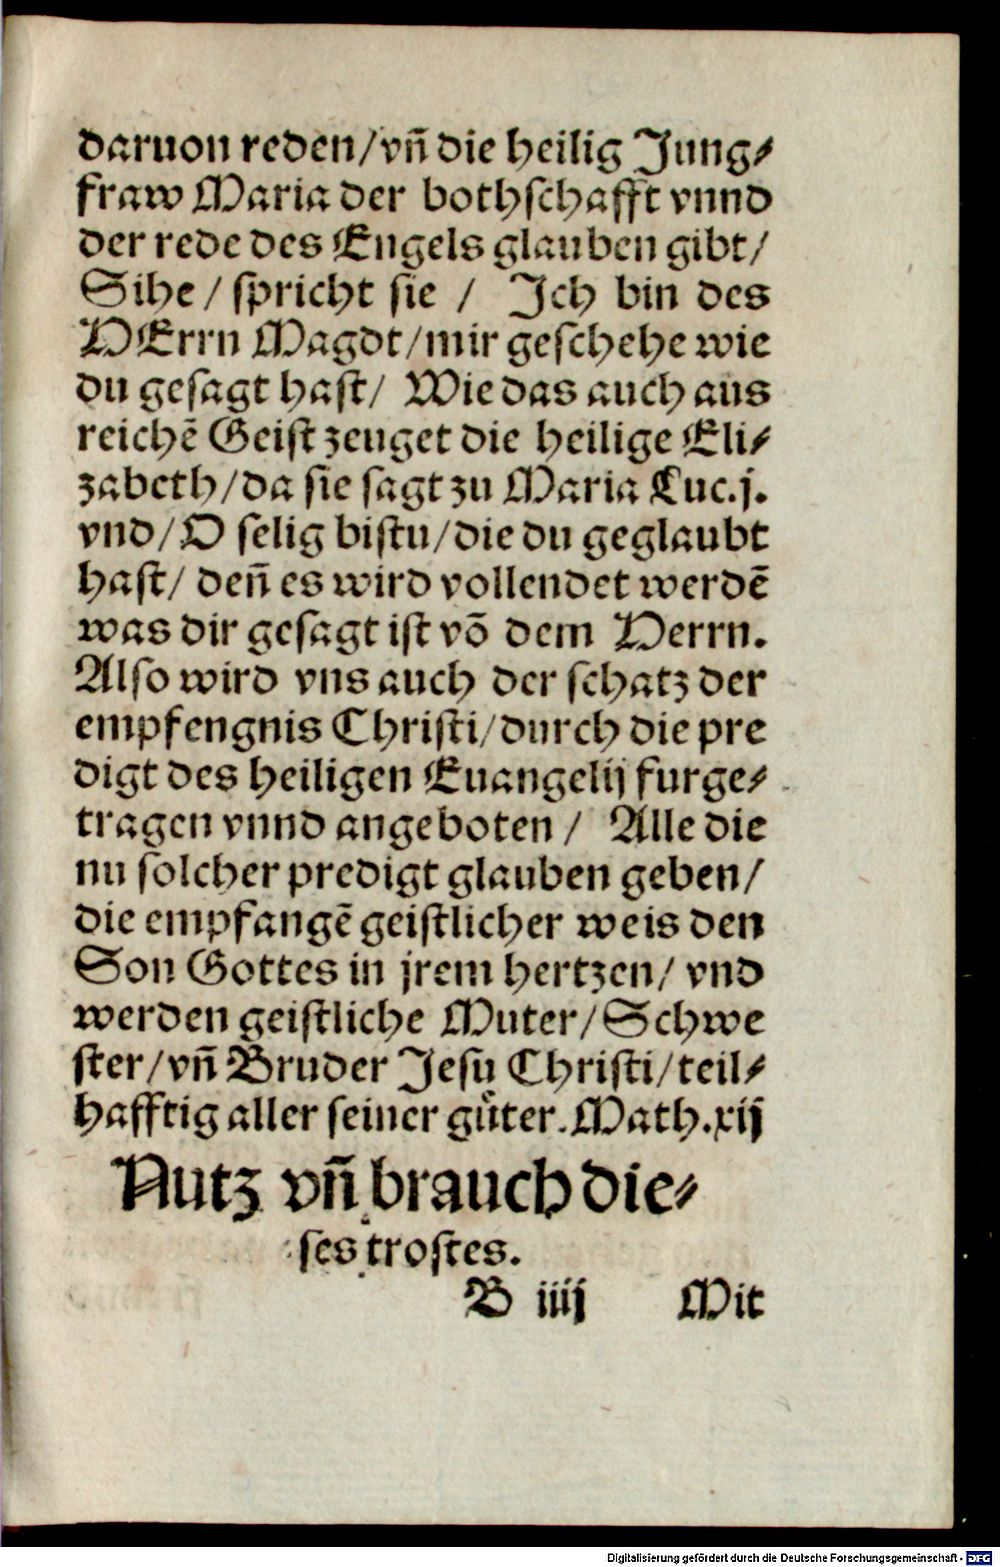 daruon reden/vñ die heilig Jung-
fraw Maria der bothschafft vnnd
der rede des Engels glauben gibt/
Sihe / spricht sie / Jch bin des
HErrn Magdt/mir geschehe wie
du gesagt hast/ Wie das auch aus
reichē Geist zeuget die heilige Eli-
zabeth/da sie sagt zu Maria Luc.j.
vnd/O selig bistu/die du geglaubt
hast/ deñ es wird vollendet werdē
was dir gesagt ist võ dem Herrn.
Also wird vns auch der schatz der
empfengnis Christi/durch die pre
digt des heiligen Euangelij furge-
tragen vnnd angeboten / Alle die
nu solcher predigt glauben geben/
die empfangē geistlicher weis den
Son Gottes in jrem hertzen/ vnd
werden geistliche Muter/Schwe
ster/vñ Bruder Jesu Christi/teil-
hafftig aller seiner gůter.Math.xij
Nutz vñ brauch die-
ses trostes.
B iiij Mit
Digitalisierung gefördert durch die Deutsche Forschungsgemeinschaft - DFG